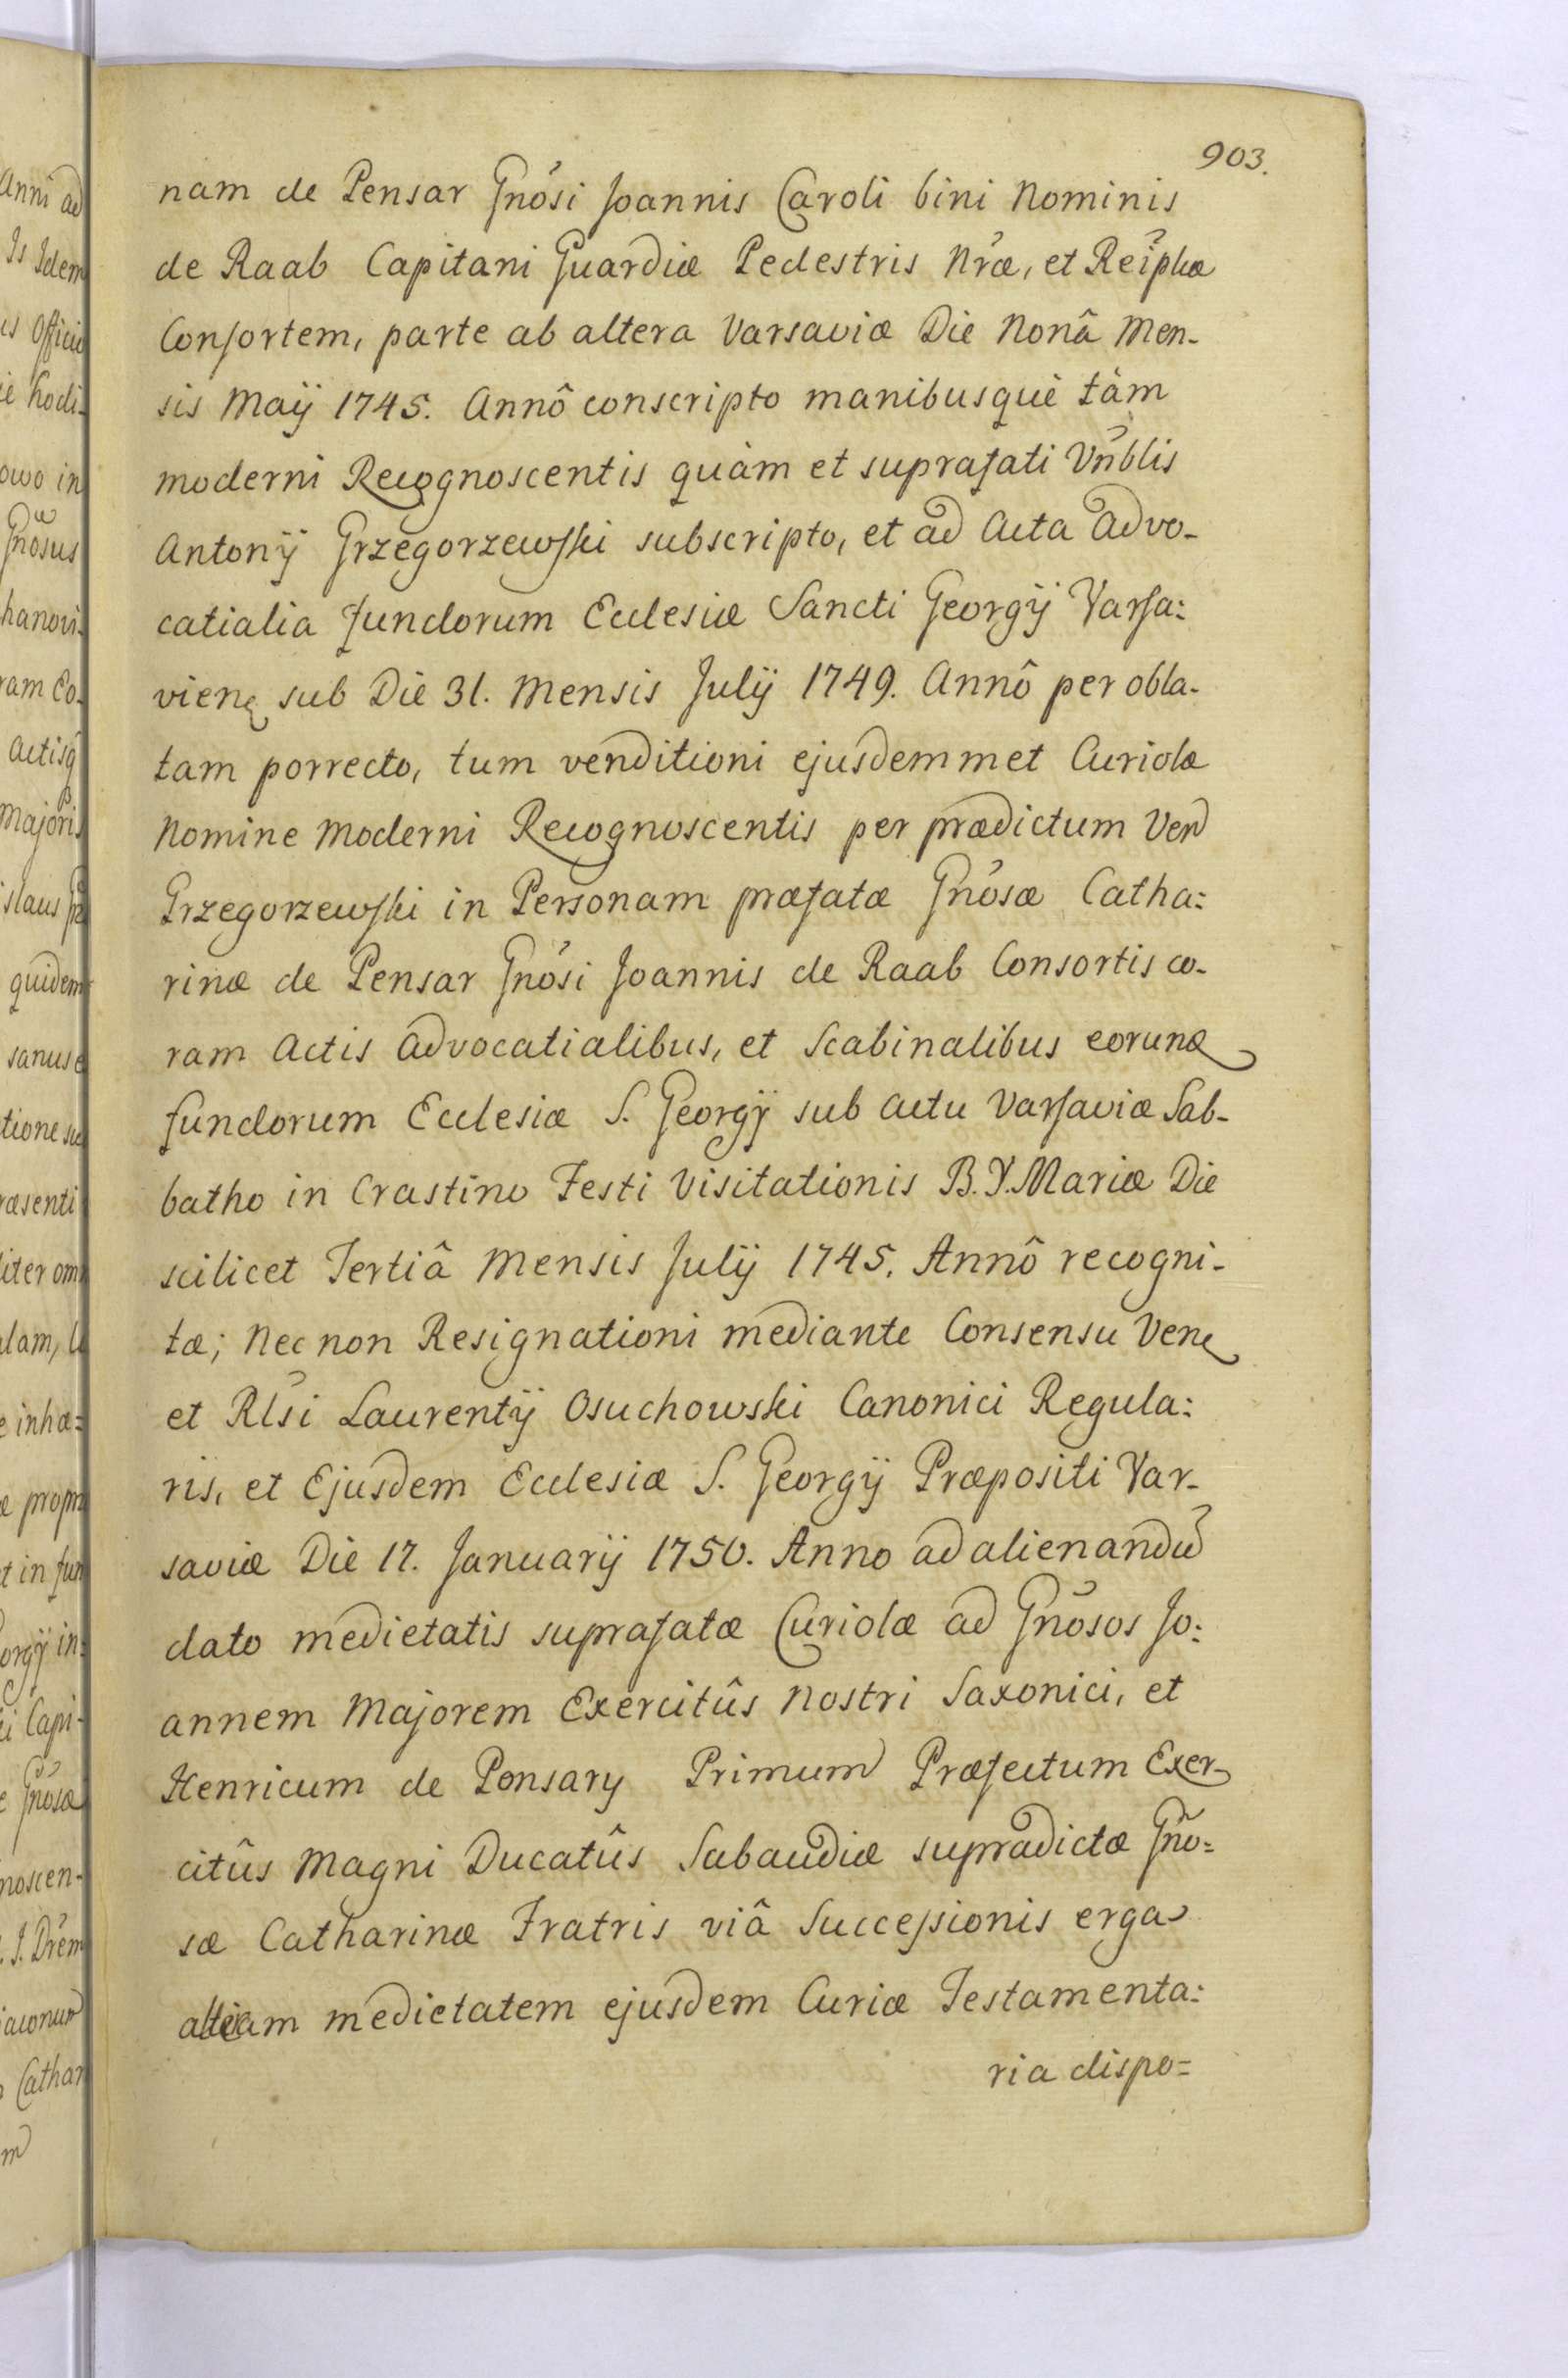 903.
nam de Pensar Gnösi Joannis Caroli bini Nominis
de Raab Capitani Guardiæ Pedestris Nræ, et Reiplicæ
Consortem, parte ab altera Varsaviæ Die Nonâ Men-
sis Maÿ 1745. Annô conscripto manibusquè tàm
moderni Recognoscentis quàm et suprafati Vnblis
Antonÿ Grzegorzewski subscripto, et ad Acta Advo-
catialia fundorum Ecclesiæ Sancti Georgÿ Varsa:
vien sub Die 31. Mensis Julÿ 1749. Annô per obla-
tam porrecto, tum venditioni ejusdemmet Curiolæ
Nomine Moderni Recognoscentis per prædictum Ven
Grzegorzewski in Personam præfatæ Gnösæ Catha:
rinæ de Pensar Gnösi Joannis de Raab Consortis co-
ram Actis Advocatialibus, et Scabinalibus eorund
fundorum Ecclesiæ S. Georgÿ sub actu Varsaviæ Sab-
batho in Crastino Festi Visitationis B. V. Mariæ Die
scilicet Tertiâ Mensis Julÿ 1745. Annô recogni-
tæ; Nec non Resignationi mediante Consensu Vene
et Rlsi Laurentÿ Osuchowski Canonici Regula:
ris, et Ejusdem Ecclesiæ S. Georgÿ Præpositi Var-
saviæ Die 17. Januarÿ 1750. Anno ad alienandū
dato medietatis suprafatæ Curiolæ ad Gnösos Jo:
annem Majorem Exercitûs Nostri Saxonici, et
Henricum de Ponsary Primum Præfectum Exer-
citûs Magni Ducatûs Sabaudiæ supradictæ Gno=
sæ Catharinæ Fratris viâ Successionis erga
alteram medietatem ejusdem Curiæ Testamenta:
ria dispo=